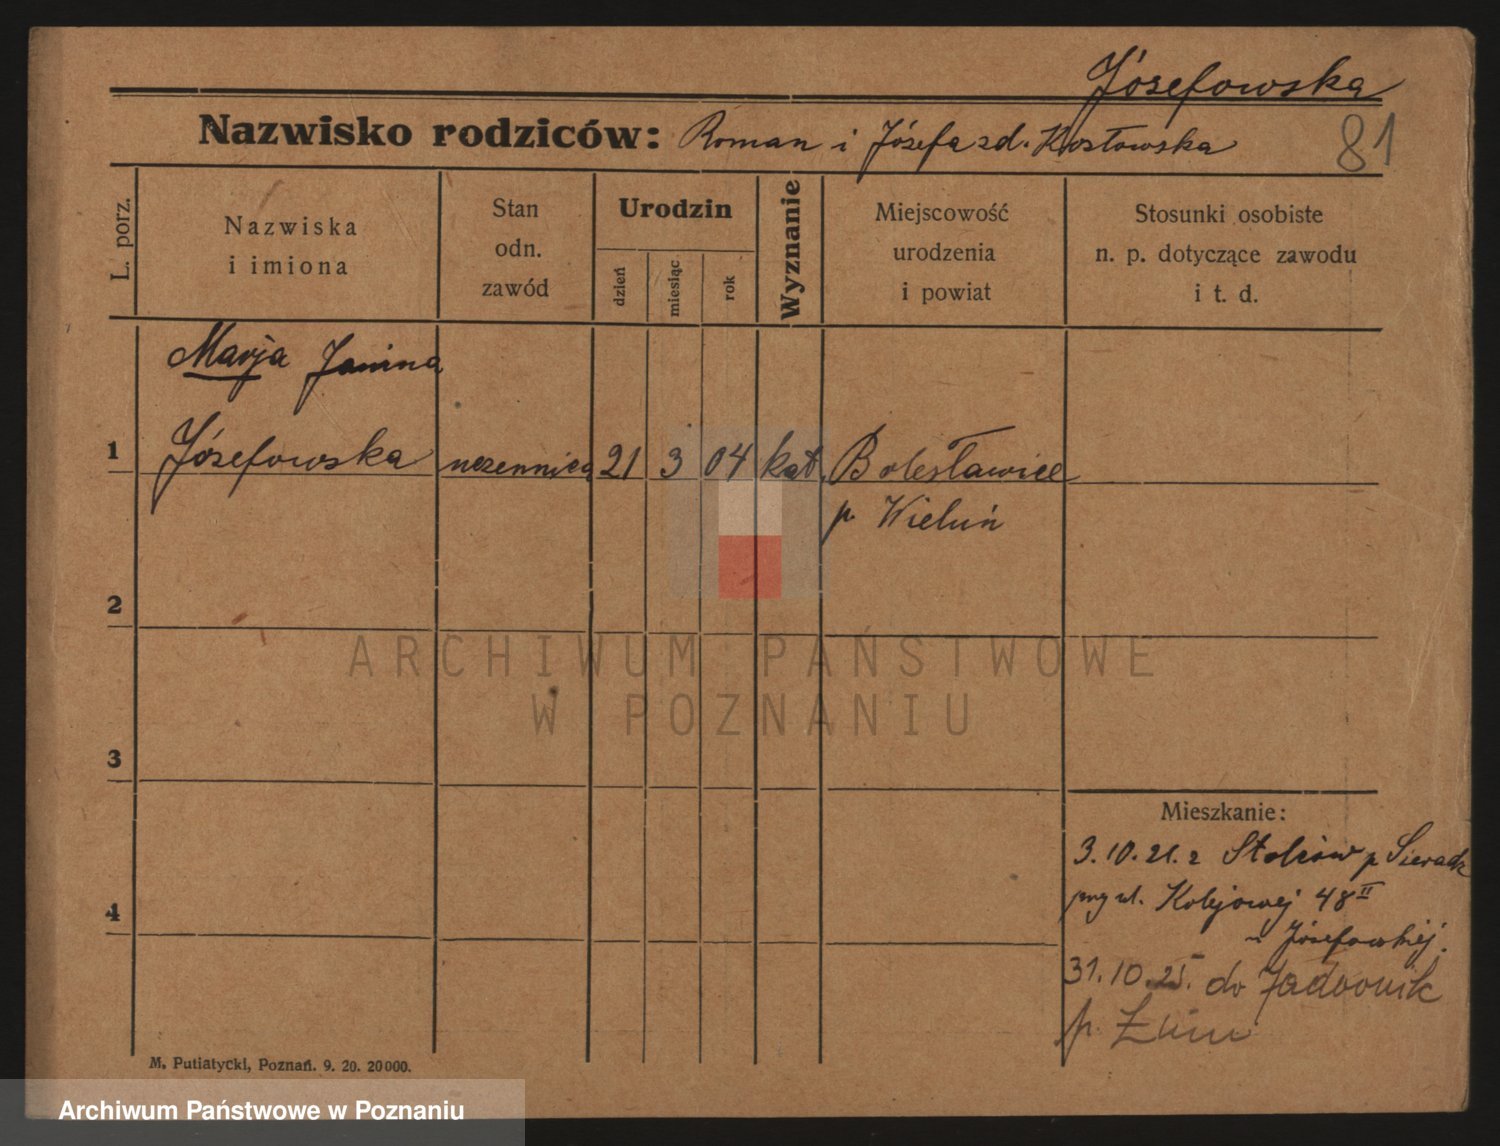 Józefowska
Nazwisko rodziców: Roman i Józefa zd. Kozłowska
81
L. porz.
Nazwiska
i imiona
Stan
odn.
zawód
Urodzin
dzień
miesiąc
rok
Wyznanie
Miejscowość
urodzenia
i powiat
Stosunki osobiste
n. p. dotyczące zawodu
i t. d.
Marja Janina
1 Józefowska uczennica 21 3 04 kat. Bolesławice
p. Wieluń
2
3
4
Mieszkanie:
3.10.21. z p Sieradz
przy ul. Kolejowej 48 II
u Józefowskiej.
31.10.25. do
p. Żnin
M. Putiatycki, Poznań. 9. 20. 20000.
ARCHIWUM PAŃSTWOWE
W POZNANIU
Archiwum Państwowe w Poznaniu